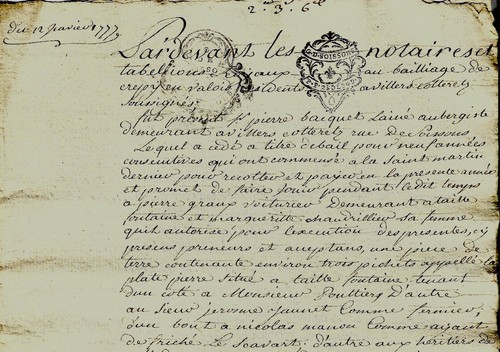 2. 3. 6
du 12 janvier 1777
Pardevant les notaires et
tabellions Royaux au bailliage de
crepy en valois Residents a villers cotterets
soussignés
G. D. SOISSONS
fut present Sr pierre bacquet Lainé aubergiste
demeurant a villers cotterets rue de soissons
Lequel a cédé a titre de bail pour neuf années
consecutives qui ont commensé a la saint martin
dernier pour recolter et payer en la presente année
et promet de faire jouir pendant ledit temps
a pierre graux voiturier Demeurant a taille
fontaine et margueritte chaudrillier sa femme
quil autorise pour l'execution des presentes, cy
presens preneurs et acceptans, une piece de
terre contenante environ trois pichets appellé la
plate pierre situé a taille fontaine, tenant
dun coté a Monsieur Pouttiers D'autre
au sieur jerosme jaunet Comme fermier,
d'un bout a nicolas manou Comme ayant
de friche Le Savart: d'autre aux héritiers